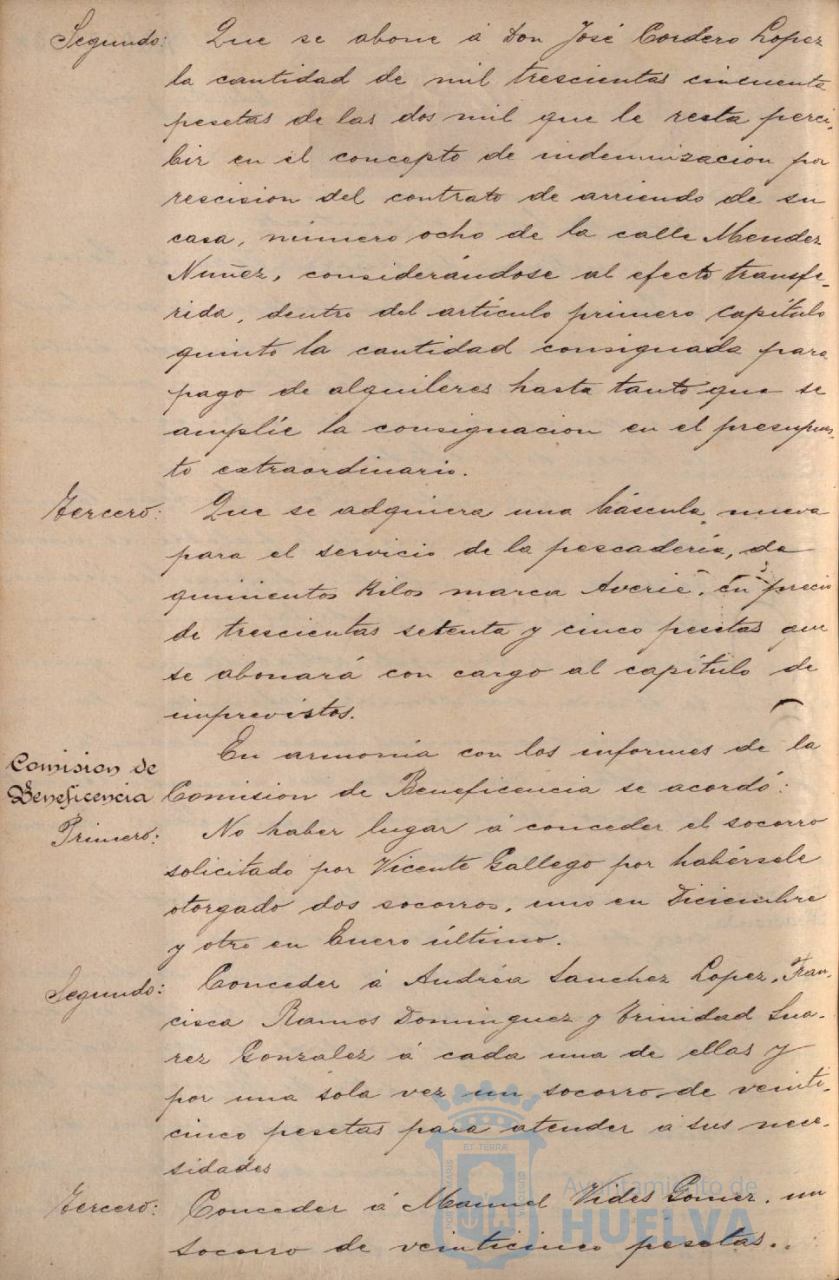 Segundo: Que se abone á Don José Cordero Lopez
la cantidad de mil trescientas cincuenta
pesetas de las dos mil que le resta perci-
bir en el concepto de indemnizacion por
rescision del contrato de arriendo de su
casa, número ocho de la calle Mendez
Nuñez, considerándose al efecto transfe-
rida, dentro del artículo primero Capítulo
quinto la cantidad consignada para
pago de alquileres hasta tanto que se
amplíe la consignacion en el presupues-
to extraordinario.
Tercero: Que se adquiera una báscula nueva
para el servicio de la pescadería, de
quinientos Kilos marca Averie, en precio
de trescientas setenta y cinco pesetas que
se abonará con cargo al capítulo de
imprevistos.
Comision de
Beneficencia
En armonia con los informes de la
Comision de Beneficencia se acordó:
Primero: No haber lugar á conceder el socorro
solicitado por Vicente Gallego por habérsele
otorgado dos socorros, uno en Diciembre
y otro en Enero último.
Segundo: Conceder á Andréa Sanchez Lopez, Fran-
cisca Ramos Dominguez y Trinidad Sua-
rez Gonzalez á cada una de ellas y
por una sola vez un socorro de veinti-
cinco pesetas para atender á sus nece-
sidades
Tercero: Conceder á Manuel Vides Gomez, un
socorro de veinticinco pesetas.
Ayuntamiento de
HUELVA